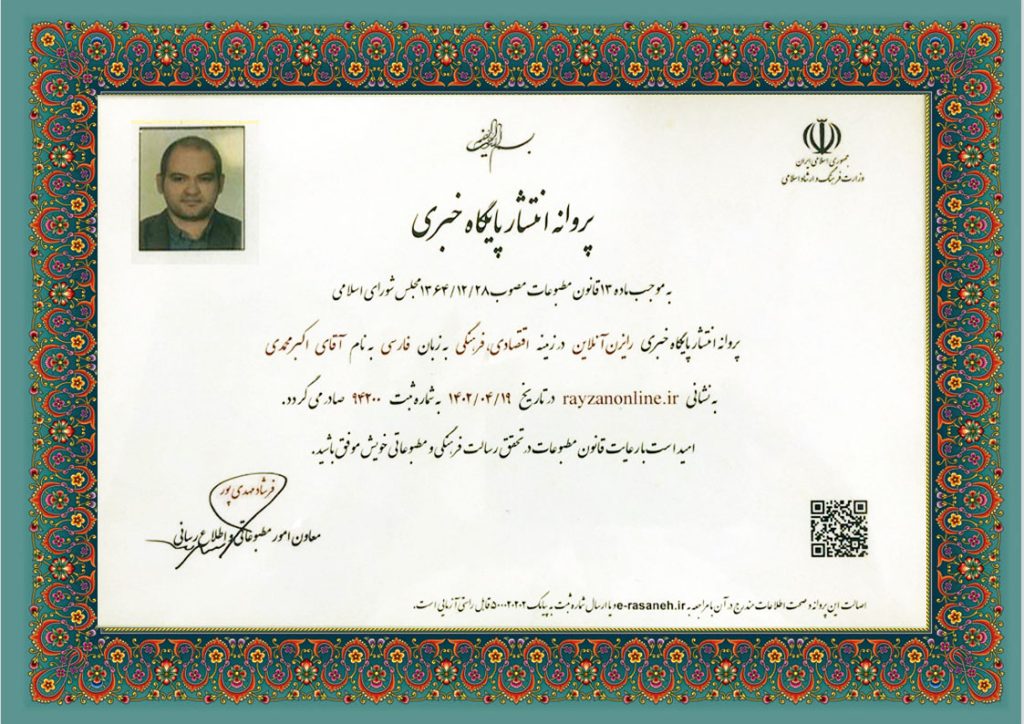 جمهوری اسلامی ایران
وزارت فرهنگ و ارشاد اسلامی
پروانه انتشار پایگاه خبری
به موجب ماده ۱۳ قانون مطبوعات مصوب ۱۳۶۴/۱۲/۲۸ مجلس شورای اسلامی
پروانه انتشار پایگاه خبری رایزن آنلاین در زمینه اقتصادی، فرهنگی به زبان فارسی به نام آقای اکبر محمدی
به نشانی rayzanonline.ir در تاریخ ۱۴۰۲/۰۴/۱۹ به شماره ثبت ۹۴۲۰۰ صادر می گردد.
امید است با رعایت قانون مطبوعات در تحقق رسالت فرهنگی و مطبوعاتی خویش موفق باشید.
فرشاد مهدی پور
معاون امور مطبوعاتی و اطلاع رسانی
اصالت این پروانه و صحت اطلاعات مندرج در آن با مراجعه به e-rasaneh.ir و یا ارسال شماره ثبت به پیامک ۵۰۰۰۲۰۲۰۲ قابل راستی آزمایی است.